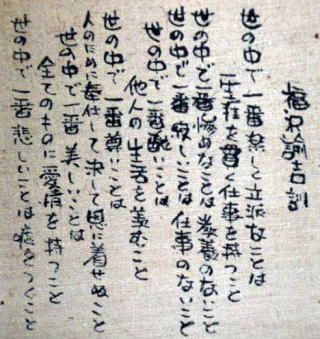 福沢諭吉訓
世の中で一番楽しく立派なことは
生涯を貫く仕事を持つこと
世の中で一番惨めなことは教養のないこと
世の中で一番寂しことは仕事のないこと
世の中で一番醜いことは
他人の生活を羨むこと
世の中で一番尊いことは
人のために奉仕して決して恩に着せぬこと
世の中で一番美しいことは
全てのものに愛情を持つこと
世の中で一番悲しいことは嘘をつくこと